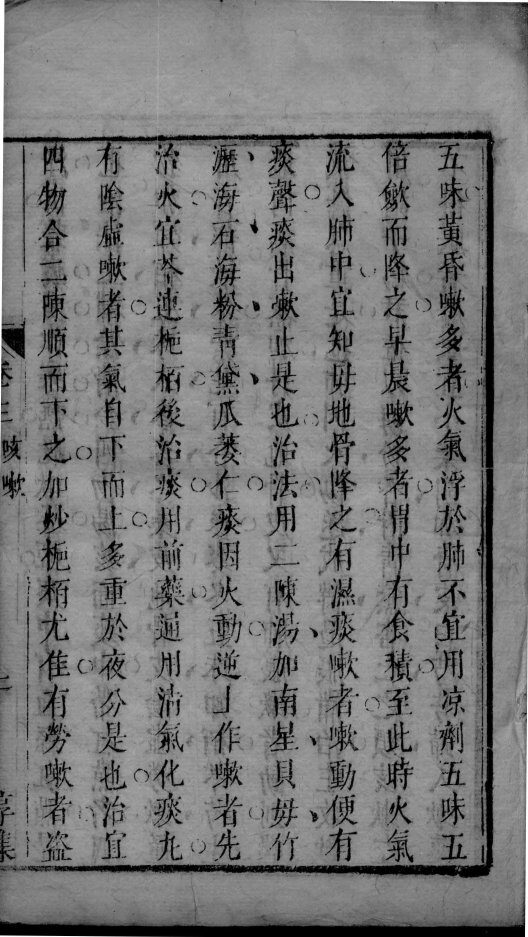 五味黃昏嗽多者火氣浮於肺不宜用凉劑五味五
倍歛而降之早晨嗽多者胃中有食積至此時火氣
流入肺中宜知母地骨降之有濕痰嗽者嗽動便有
痰聲痰出嗽止是也治法用二陳湯加南星貝母竹
瀝海石海粉青黛瓜蔞仁痰因火動逆上作嗽者先
治火宜芩連梔栢後治痰用前藥通用清氣化痰丸
有陰虛嗽者其氣自下而上多重於夜分是也治宜
四物合二陳順而下之加炒梔栢尤佳有勞嗽者盜
卷三
咳嗽
亨集